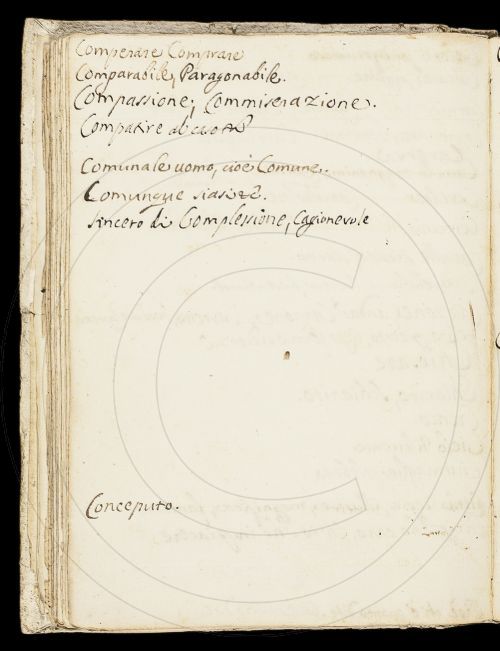 Comperare Comprare
Comparabile, Paragonabile.
Compassione, Commiserazione.
Compatire
Comunale uomo, cioè Comune.
Comunque
sincero di Complessione, Cagionevole
Conceputo.